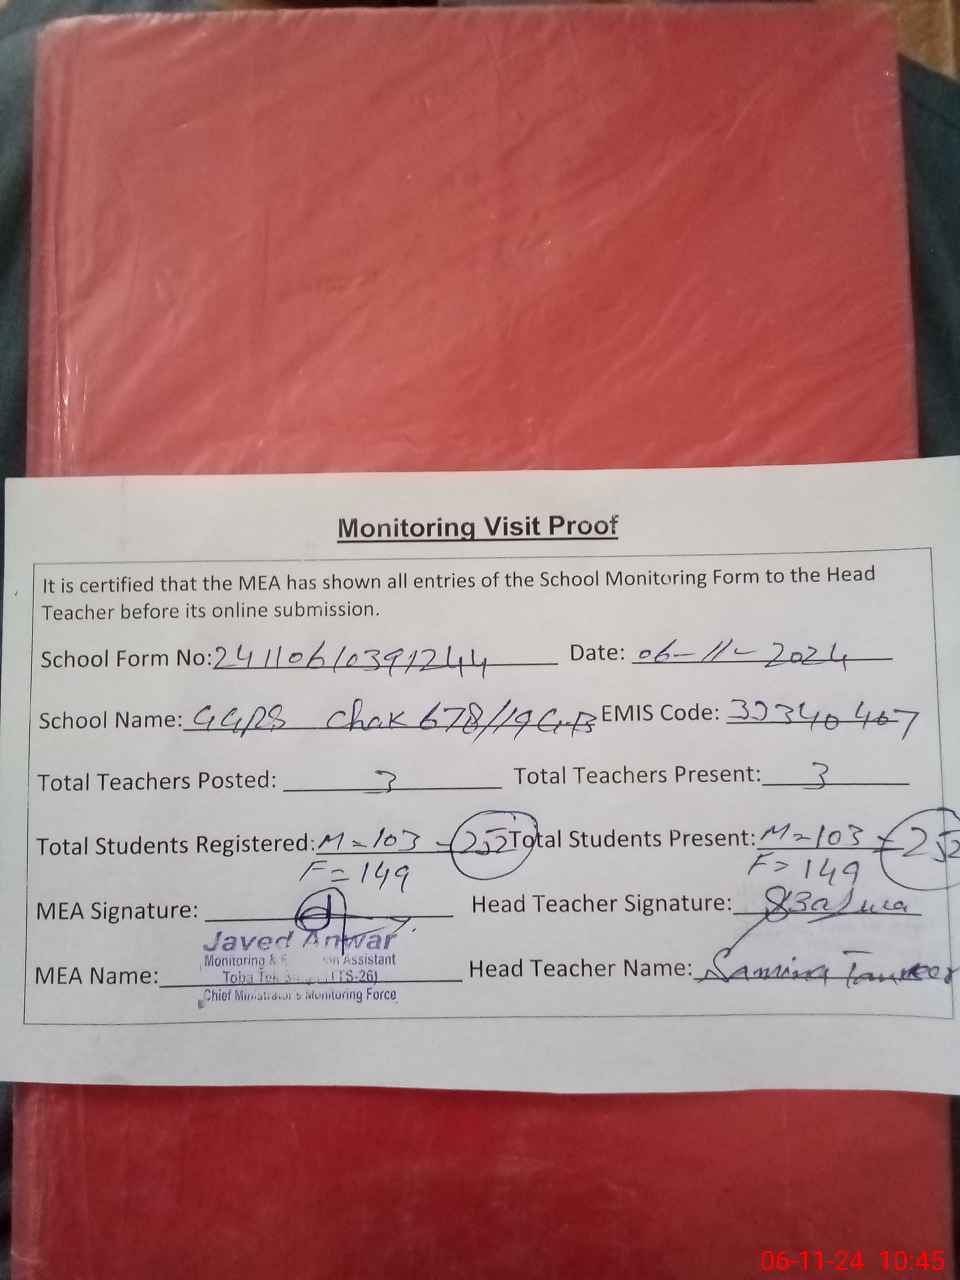 Monitoring Visit Proof
It is certified that the MEA has shown all entries of the School Monitoring Form to the Head
Teacher before its online submission.
School Form No: 24110610391244 Date: 06-11-2024
School Name: GGPS Chak 678/19 G-B EMIS Code: 33340407
Total Teachers Posted: 3 Total Teachers Present: 3
Total Students Registered: M=103 - 252 Total Students Present: M=103 - 252
F=149 F=149
MEA Signature: Head Teacher Signature:
Javed Anwar
Monitoring & Assistant
MEA Name: Toba Tek (TTS-26) Head Teacher Name: Samina
Chief Minister's Monitoring Force
06-11-24 10:45